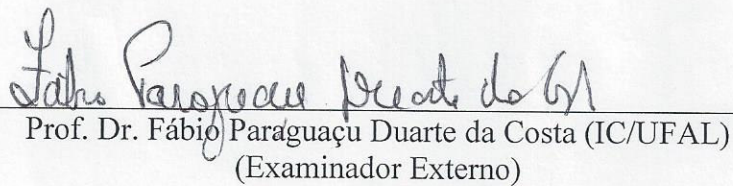 Fábio Paraguaçu Duarte da Costa
Prof. Dr. Fábio Paraguaçu Duarte da Costa (IC/UFAL)
(Examinador Externo)